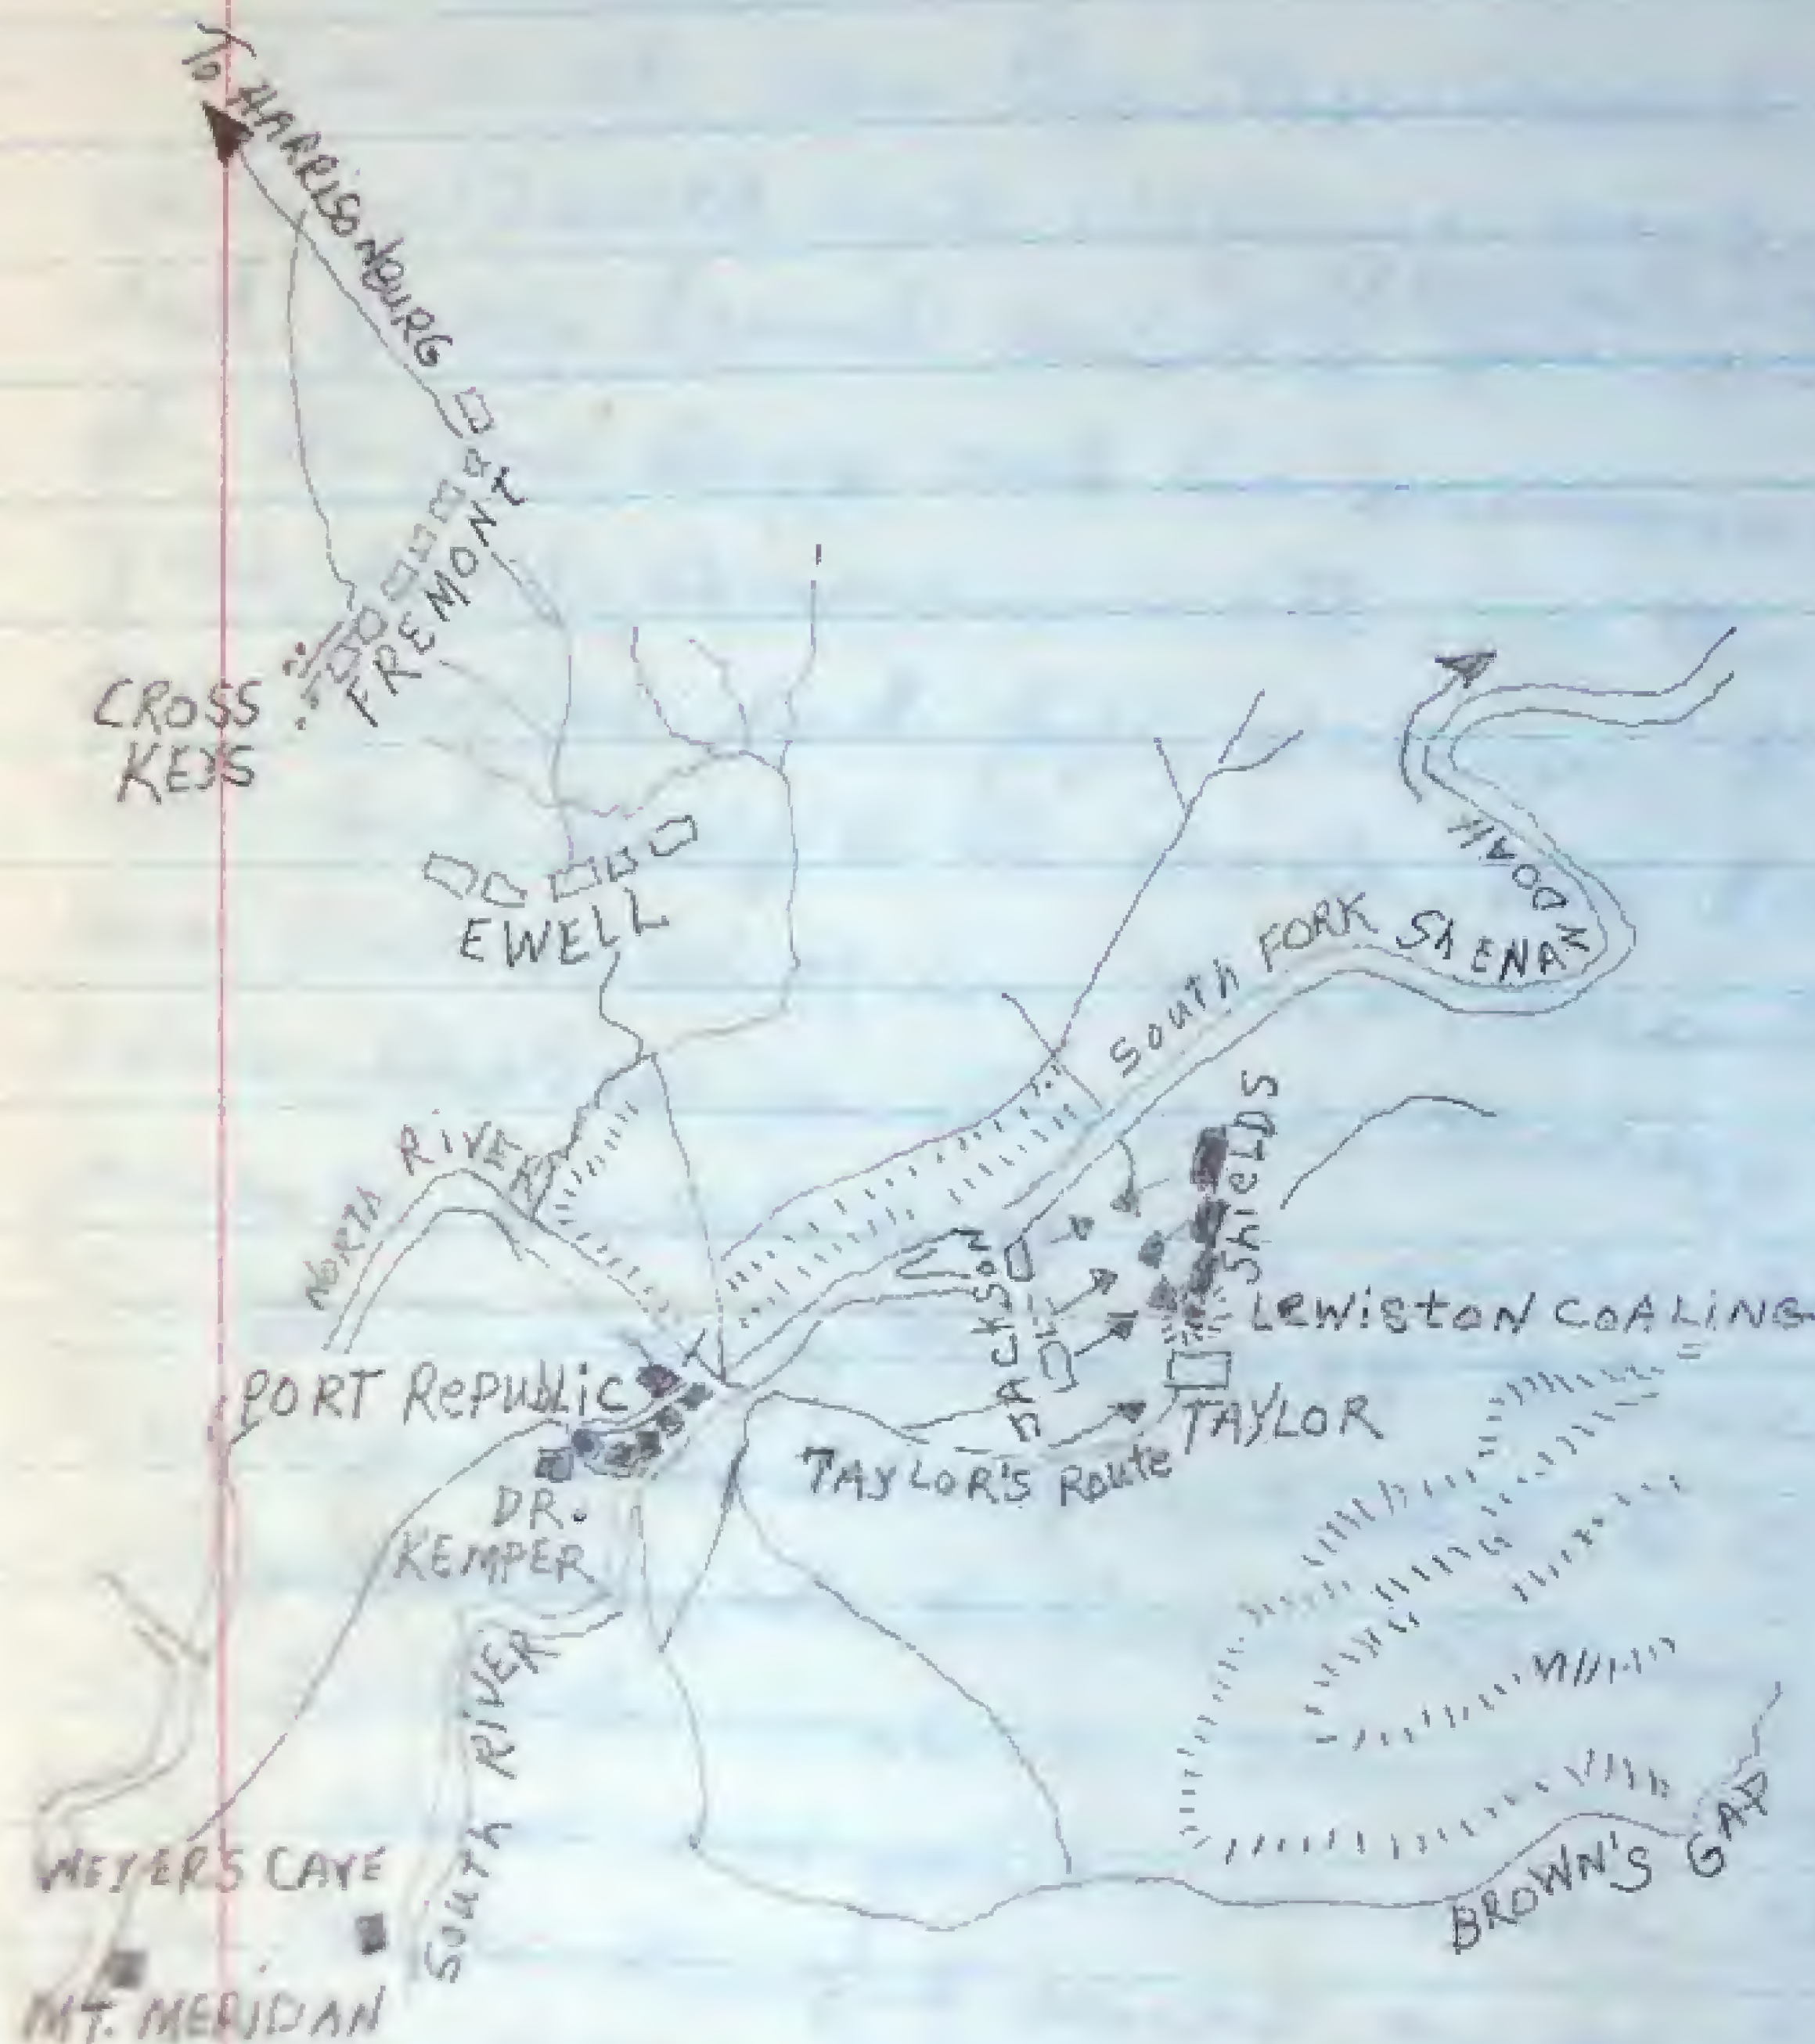 To HARRISONBURG
FREMONT
CROSS
KEYS
EWELL
SOUTH FORK SHENANDOAH
NORTH RIVER
SHIELDS
JACKSON
LEWISTON COALING
PORT REPUBLIC
TAYLOR
TAYLOR'S Route
DR.
KEMPER
SOUTH RIVER
WEYER'S CAVE
BROWN'S GAP
MT. MERIDIAN